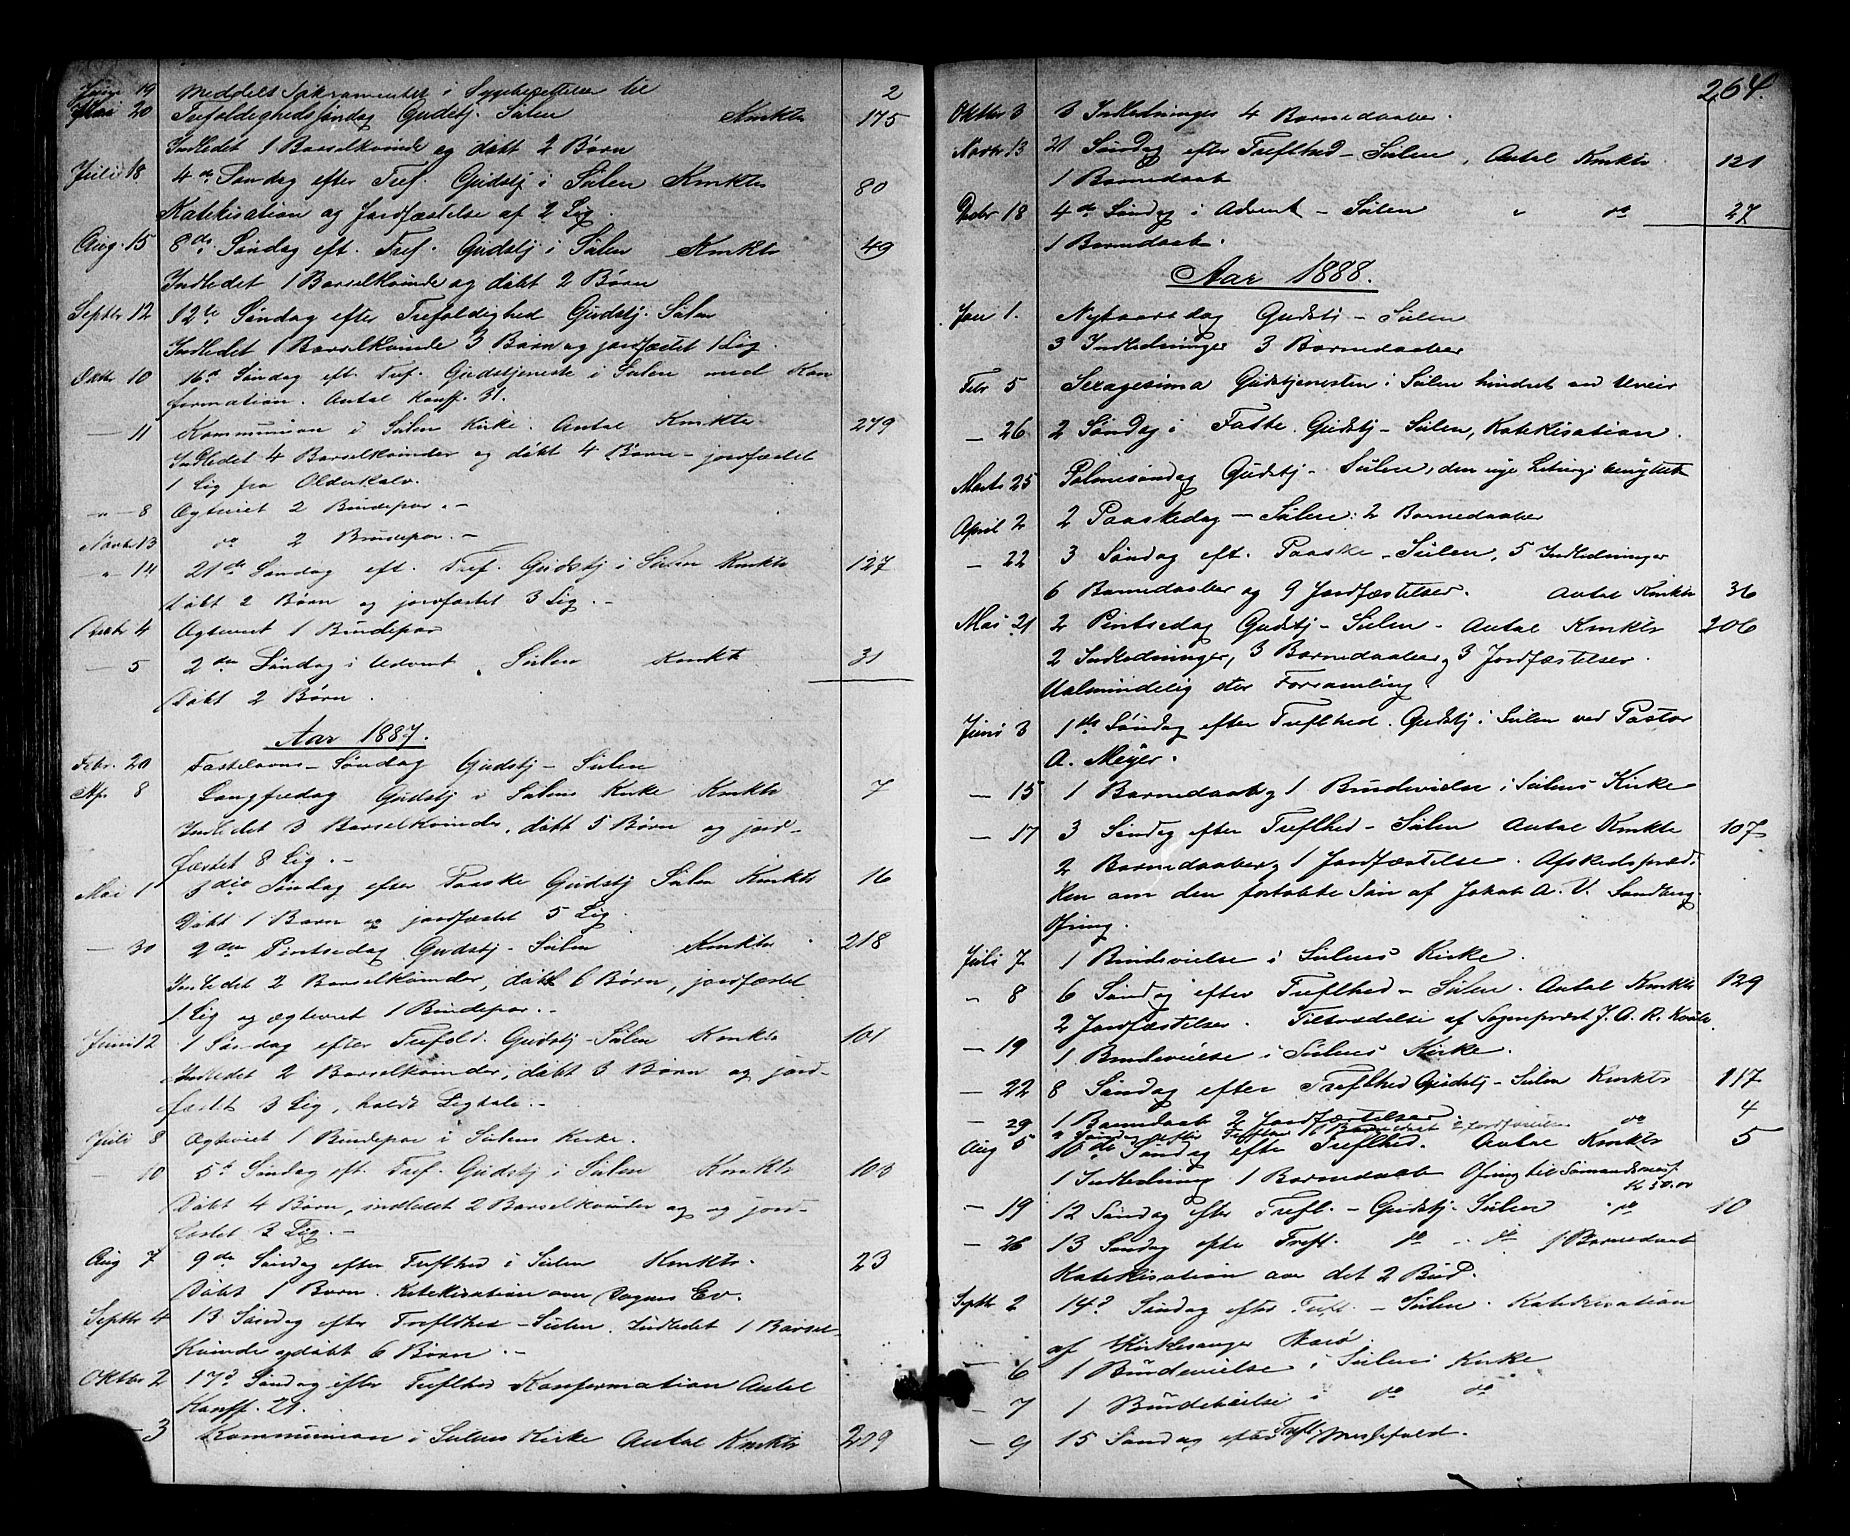 Juni 19 Meddelt Sakramentet i Sygeberettelse til 2
20 Trefoldighedssøndag Gudstj. Sulen Kmkts 175
Indledet 1 Barselkvinde og døbt 2 Børn
Juli 18 4de Søndag efter Tref. Gudstj i Sulen Kmkts 80
Katekisation og Jordfæstelse af 2 Lig.
Aug. 15 8de Søndag eft. Tref. Gudstj i Sulen Kmkts 49
Indledet 1 Barselkvinde og døbt 2 Børn
Septbr 12 12te Søndag efter Trefoldighed Gudstj. Sulen
Indledet 1 Barselkvinde 3 Børn og jordfæstet 1 Lig.
Oktbr 10 16d Søndag eft. Tref. Gudstjeneste i Sulen med Kon
firmation. Antal Konff. 31.
— 11 Kommunion i Sulen Kirke. Antal Kmkts 279
Indledet 4 Barselkvinder og døbt 4 Børn – jordfæstet
1 Lig fra
— " — 8 Ægteviet 2 Brudepar. –
Novbr 13 do 2 Brudepar. –
— " — 14 21de Søndag eft. Tref. Gudstj i Sulen Kmkts 127
Døbt 2 Børn og jordfæstet 3 Lig. –
Decbr 4 Ægteviet 1 Brudepar
— 5 2den Søndag i Advent Sulen Kmkts 31
Døbt 2 Børn.
Aar 1887.
Febr. 20 Fastelavns-Søndag Gudstj – Sulen
Ap. 8 Langfredag Gudstj i Sulens Kirke Kmkts 7
Indledet 3 Barselkvinder, døbt 5 Børn og jord-
fæstet 8 Lig. –
Mai 1 3die Søndag efter Paaske Gudstj Sulen Kmkts 16
Døbt 1 Barn og jordfæstet 5 Lig.
— 30 2den Pintsedag Gudstj – Sulen Kmkts 218
Indledet 2 Barselkvinder, døbt 6 Børn, jordfæstet
1 Lig og ægteviet 1 Brudepar. –
Juni 12 1 Søndag efter Trefold. Gudstj – Sulen Kmkts 101
Indledet 2 Barselkvinder, døbt 3 Børn og jord-
fæstet 3 Lig, holdt Ligtale. –
Juli 8 Ægteviet 1 Brudepar i Sulens Kirke.
— 10 5t Søndag eft. Tref. Gudstj i Sulen Kmkts 103
Døbt 4 Børn, indledet 2 Barselkvinder og og jord-
fæstet 3 Lig. –
Aug 7 9de Søndag efter Treflhed i Sulen Kmkts. 23
Døbt 1 Barn. Katekisation over Dagens Ev.
Septbr 4 13 Søndag efter Treflhed – Sulen. Indledet 1 Barsel-
kvinde og døbt 6 Børn. –
Oktbr 2 17d Søndag efter Treflhed Konfirmation Antal
Konff. 21.
— 3 Kommunion i Sulens Kirke Antal Kmkts 219
264.
Oktbr 3 3 Indledninger 4 Barnedaaber.
Novbr 13 21 Søndag efter Treflhed – Sulen, Antal Kmkts 121
1 Barnedaab
Decbr 18 4de Søndag i Advent – Sulen " do 27
1 Barnedaab.
Aar 1888.
Jan 1. Nytaarsdag Gudstj – Sulen
3 Indledninger 3 Barnedaaber
Febr 5 Sexagesima Gudstjenesten i Sulen hindret ved Uveir
— 26 2 Søndag i Faste. Gudstj – Sulen, Katekisation.
Marts 25 Palmesøndag Gudstj – Sulen, den nye Liturgi benyttet
April 2 2 Paaskedag – Sulen: 2 Barnedaaber
— 22 3 Søndag eft. Paaske – Sulen, 5 Indledninger
6 Barnedaaber og 9 Jordfæstelser. Antal Kmkts 36
Mai 21 2 Pintsedag Gudstj – Sulen – Antal Kmkts 206
2 Indledninger, 3 Barnedaaber, 3 Jordfæstelser.
Ualmindelig stor Forsamling
Juni 3 1ste Søndag efter Treflhed. Gudstj i Sulen ved Pastor
A. Meyer.
— 15 1 Barnedaab, 1 Brudevielse i Sulens Kirke
— 17 3 Søndag efter Treflhed – Sulen Antal Kmkts 107
2 Barnedaaber, 1 Jordfæstelse. Afskedspræd-
ken om den fortabte Søn af Jakob A. V. Sandberg
Ofring.
Juli 7 1 Brudevielse i Sulens Kirke.
" 8 6 Søndag efter Treflhed – Sulen. Antal Kmkts 129
2 Jordfæstelser. Tiltrædelse af Sogneprest J. A. R.
— 19 1 Brudevielse i Sulens Kirke.
— 22 8 Søndag efter Treflhed Gudstj – Sulen Kmkts 117
1 Barnedaab 2 Jordfæstelser
— 29 9 Søndag efter Treflhed 6 2 Jordfæstelser do 4
Aug 5 10de Søndag efter Treflhed. Antal Kmkts 5
1 Indledning 1 Barnedaab Ofring til Sømandsmis.
Kr 30.00
— 19 12 Søndag efter Trefl. – Gudstj. Sulen " do 10
— 26 13 Søndag efter Trefl. do – " do 1 Barnedaab
Katekisation over det 2 Bud.
Septbr 2 14d Søndag efter Trefl. – Sulen. Katekisation
af Kirkesanger
— 6 1 Brudevielse i Sulens Kirke
— 7 1 Brudevielse i do do
— 9 15 Søndag efter Trefl. Messefald.